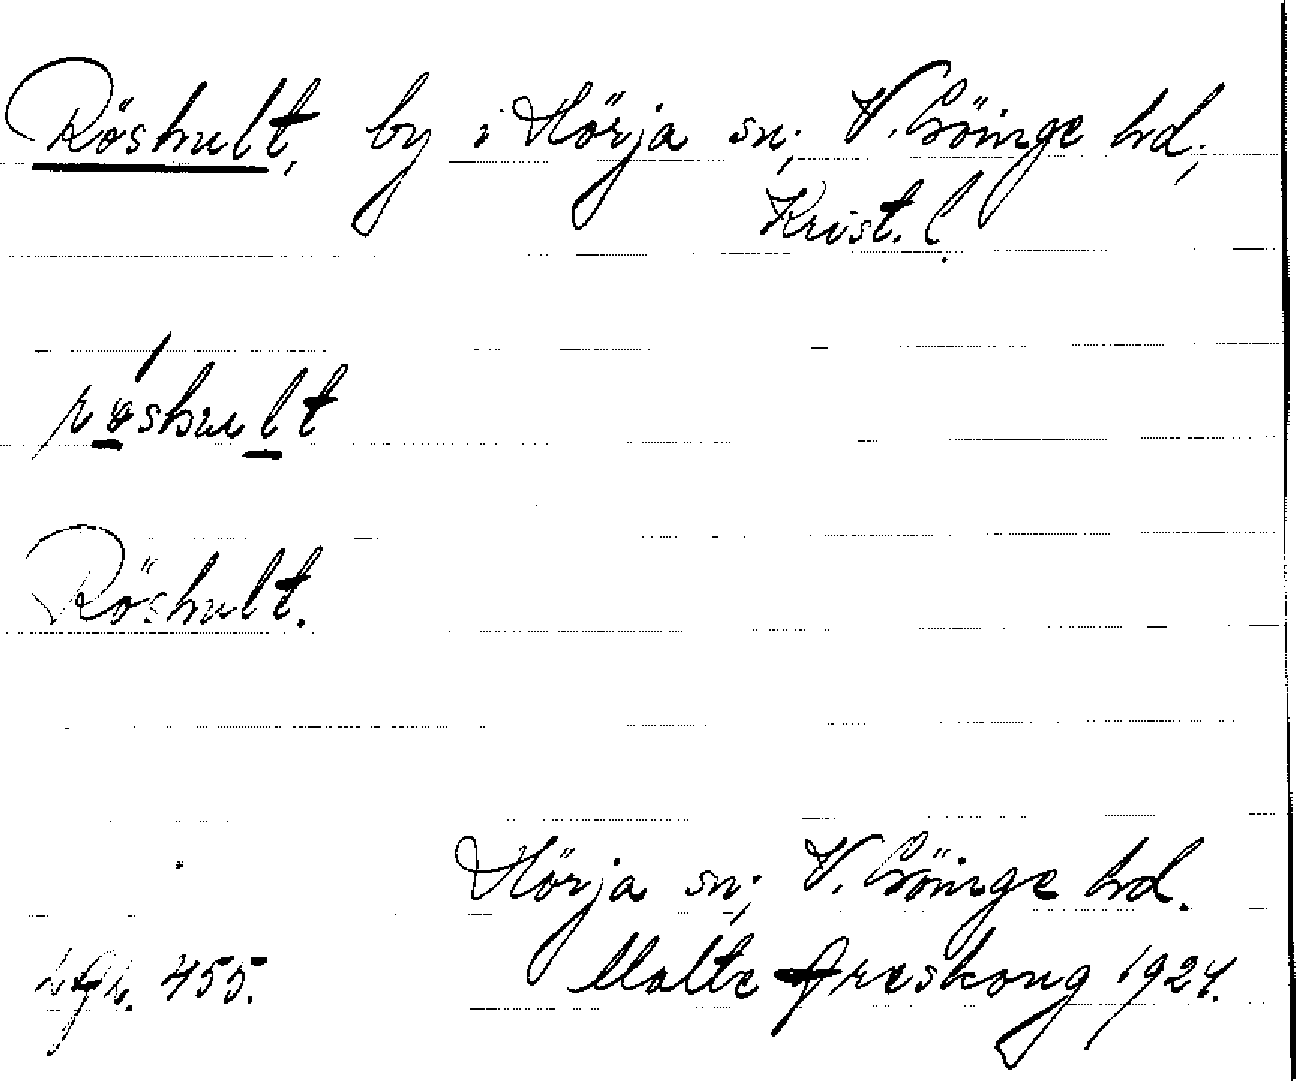 Röshult, by i Hörja sn; V. Göinge hd;
Krist. l.
røshult
Röshult.
Hörja sn; V. Göinge hd.
455. Malte Areskoug 1924.